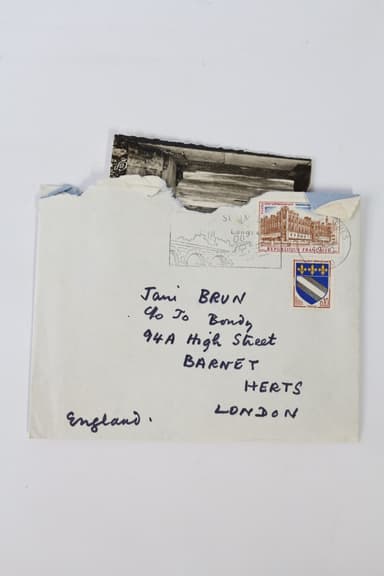 RÉPUBLIQUE FRANÇAISE
Jani BRUN
c/o Jo Bondy
94A High Street
BARNET
HERTS
LONDON
England.